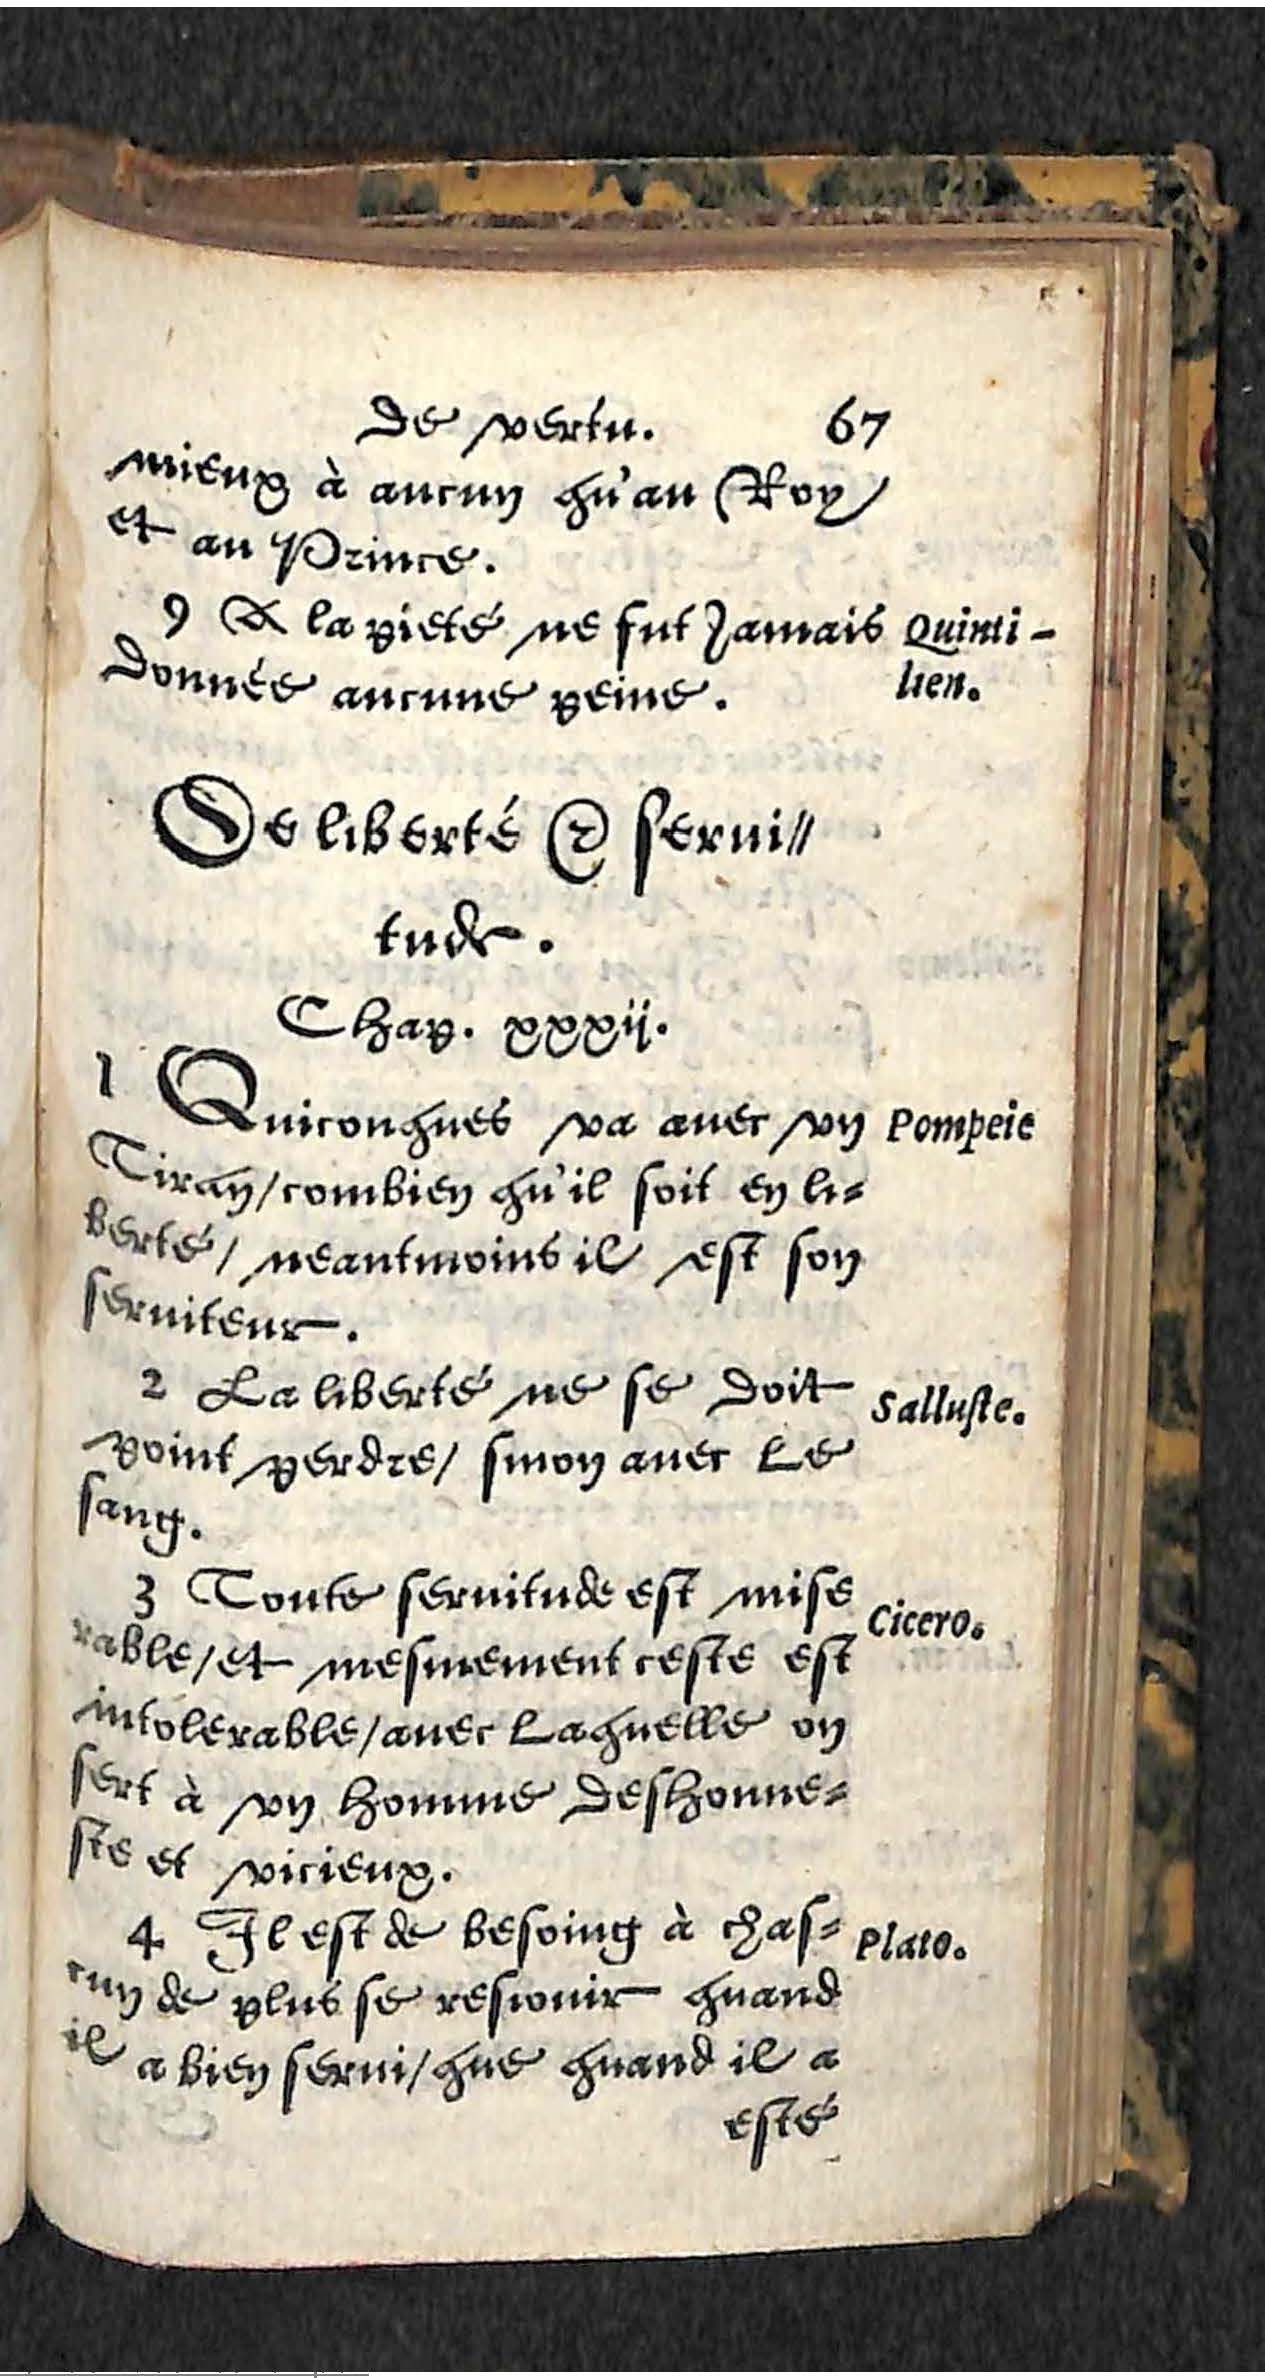 de vertu. 67
mieux à aucun qu'au Roy
et au Prince.
9 A la pieté ne fut Jamais Quinti-
donnée aucune peine. lien.
De liberté & servi//
tude.
Chap. xxxii.
1 Quiconques va auec vn Pompeie
Tiran/combien qu'il soit en li=
berté/ neantmoins il est son
seruiteur.
2 La liberté ne se doit Salluste.
point perdre/ sinon auec Le
sang.
3 Toute seruitude est mise Cicero.
rable/et mesmement ceste est
intolerable/auec Laquelle on
sert à vn homme deshonne=
ste et vicieux.
4 Il est de besoing à chas= Plato.
cun de plus se resiouir quand
il a bien serui/que quand il a
esté